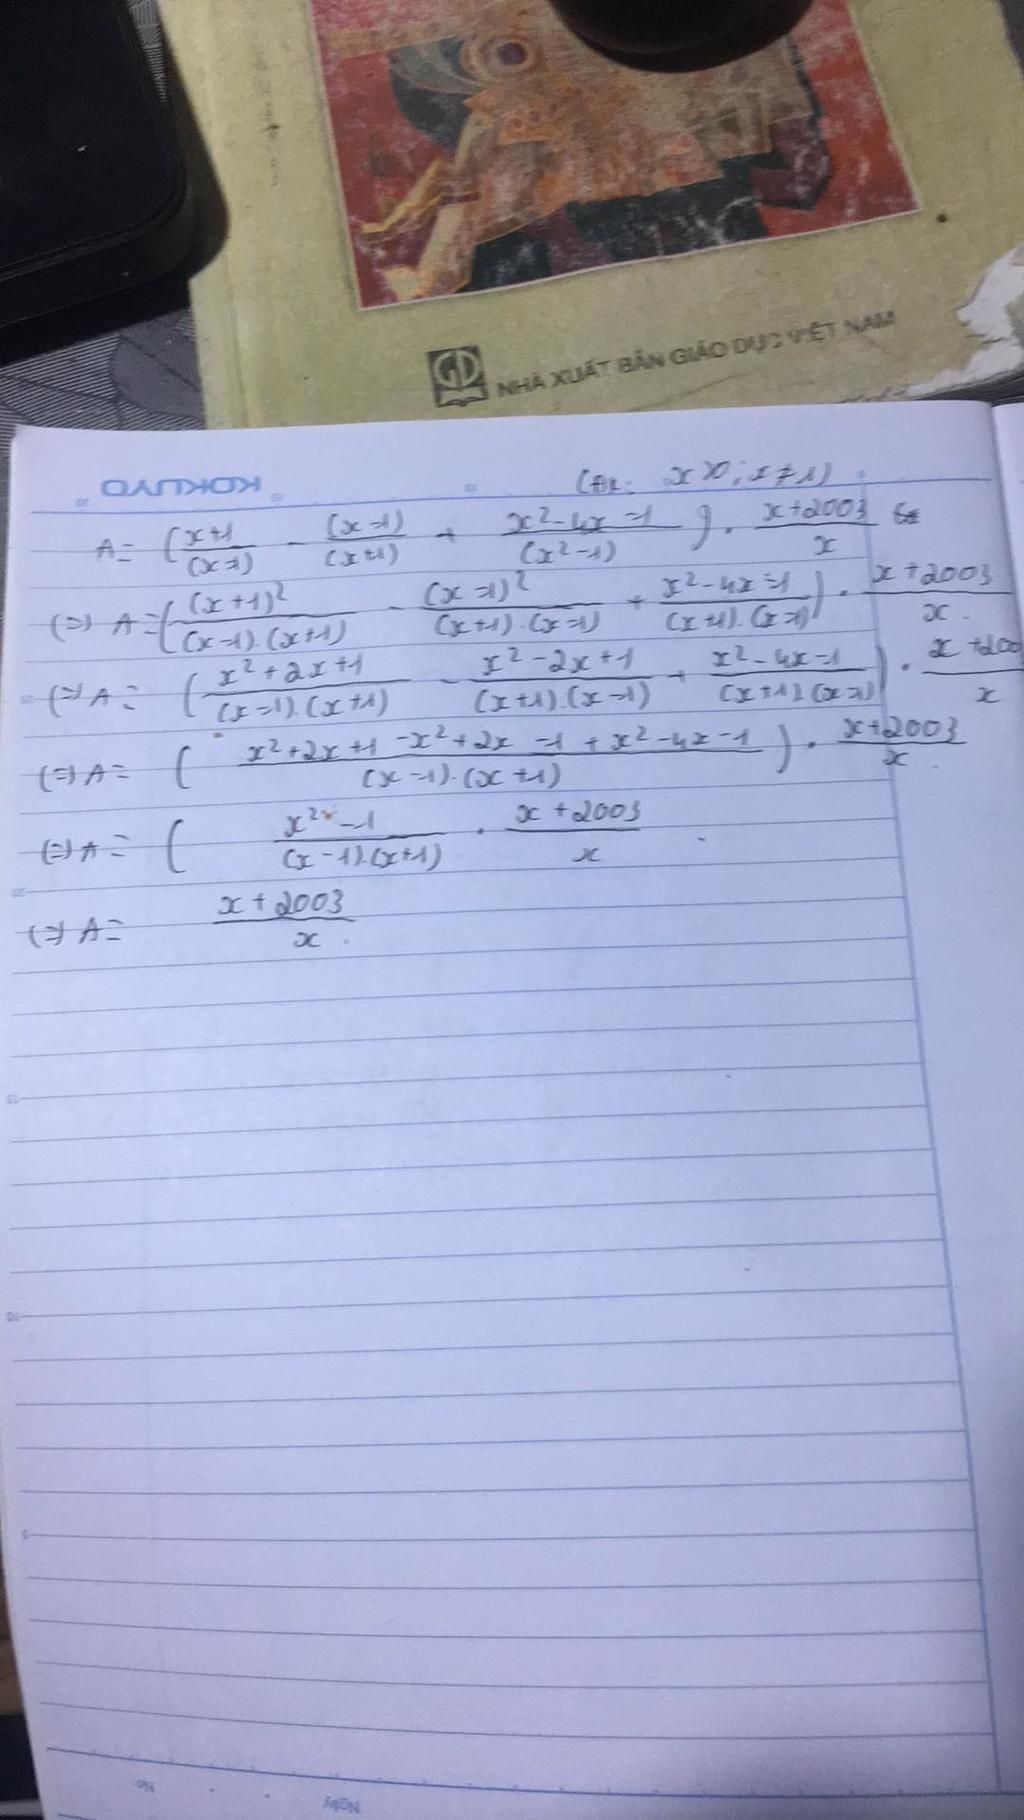 GD NHÀ XUẤT BẢN GIÁO DỤC VIỆT NAM
KOKUYO
(ĐK: x>0; x≠1)
A = (\frac{x+1}{(x-1)} - \frac{(x-1)}{(x+1)} + \frac{x²-4x-1}{(x²-1)}) . \frac{x+2003}{x}
(=) A = (\frac{(x+1)²}{(x-1).(x+1)} - \frac{(x-1)²}{(x+1).(x-1)} + \frac{x²-4x-1}{(x+1).(x-1)}) . \frac{x+2003}{x}
(=) A = (\frac{x²+2x+1}{(x-1).(x+1)} - \frac{x²-2x+1}{(x+1).(x-1)} + \frac{x²-4x-1}{(x+1).(x-1)}) . \frac{x+200}{x}
(=) A = (\frac{x²+2x+1-x²+2x-1+x²-4x-1}{(x-1).(x+1)}) . \frac{x+2003}{x}
(=) A = (\frac{x²-1}{(x-1).(x+1)} . \frac{x+2003}{x}
(=) A = \frac{x+2003}{x}
20
15
10
5
No
Ngày